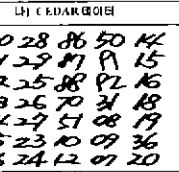 나) CEDAR 데이터
0 28 86 50 14
29 87 91 15
25 88 92 16
26 70 31 18
27 51 08 19
23 10 09 36
24 12 07 20